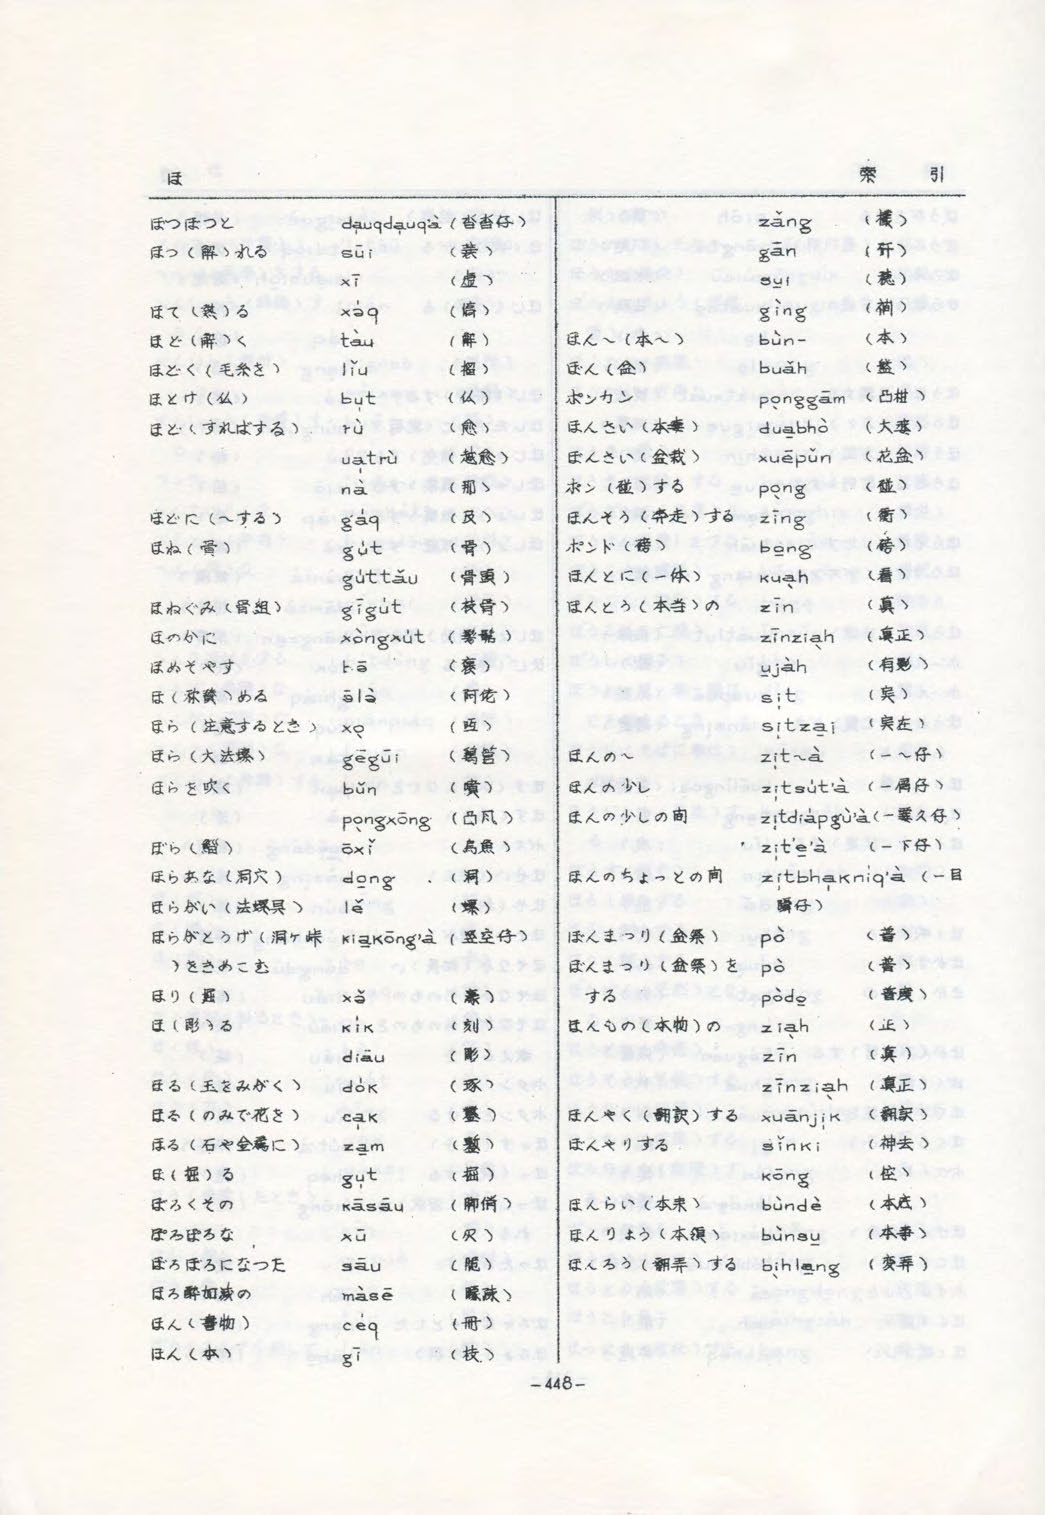 ほ
索 引
ぽつぽつと dauqdauqà (沓沓仔)
ほつ(解)れる sūi
xī (虚)
ほて(熱)る xàq
ほど(解)く tàu (解)
ほどく(毛糸を) lǐu
ほとけ(仏) bụt (仏)
ほど(すればする) rù (愈)
ụatrù (越愈)
nà (那)
ほどに(〜する) gáq (及)
ほね(骨) gút (骨)
gúttǎu (骨頭)
ほねぐみ(骨組) gīgút (枝骨)
ほのかに xòngxút
ほめそやす (褒)
ほ(弥縫)める ālà
ほら(注意するとき) xọ
ほら(大法螺) gēgūi
ほらを吹く bǔn (噴)
pọngxōng (凸風)
ぼら(鯔) ōxǐ (烏魚)
ほらあな(洞穴) dọng (洞)
ほらがい(法螺貝) lě (螺)
ほらがとうげ(洞ケ峠 kiạkōng'à (竪空仔)
)をきめこむ
ほり(濠) xǎ
ほ(彫)る kík (刻)
diāu (彫)
ほる(玉をみがく) dók (琢)
ほる(のみで花を) cạk (鑿)
ほる(石や金属に) zạm (鏨)
ほ(掘)る gụt (掘)
ぼろくその kāsāu
ぼろぼろな xū
ぼろぼろになつた sāu (脆)
ほろ酔加減の màsē
ほん(書物) céq (冊)
ほん(本) gī (枝)
zǎng (欉)
gān (矸)
sụi (穂)
gìng
ほん〜(本〜) bùn- (本)
ぼん(盆) buǎh (盤)
ポンカン pọnggām (凸柑)
ほんさい(本妻) dụabhò (大某)
ぼんさい(盆栽) xuēpǔn (花盆)
ポン(碰)する pọng (碰)
ほんそう(奔走)する zīng
ポンド(磅) bọng (磅)
ほんとに(一体) kụah (看)
ほんとう(本当)の zīn (真)
zīnziạh (真正)
ụjàh (有影)
sịt (実)
sịtzại (実在)
ほんの〜 zịt〜à (一〜仔)
ほんの少し zịtsút'à (一屑仔)
ほんの少しの間 zịtdiápgù'à (一霎久仔)
zịt'ẹ'à (一下仔)
ほんのちょっとの間 zịtbhạkniq'à (一目
瞬仔)
ぼんまつり(盆祭) pò (普)
ぼんまつり(盆祭)を pò (普)
する pòdọ (普度)
ほんもの(本物)の ziạh (正)
zīn (真)
zīnziạh (真正)
ほんやく(翻訳)する xuānjịk (翻訳)
ぼんやりする sǐnkì (神去)
kōng
ほんらい(本来) bùndè (本底)
ほんりょう(本領) bùnsụ (本事)
ほんろう(翻弄)する bịhlạng (変弄)
-448-